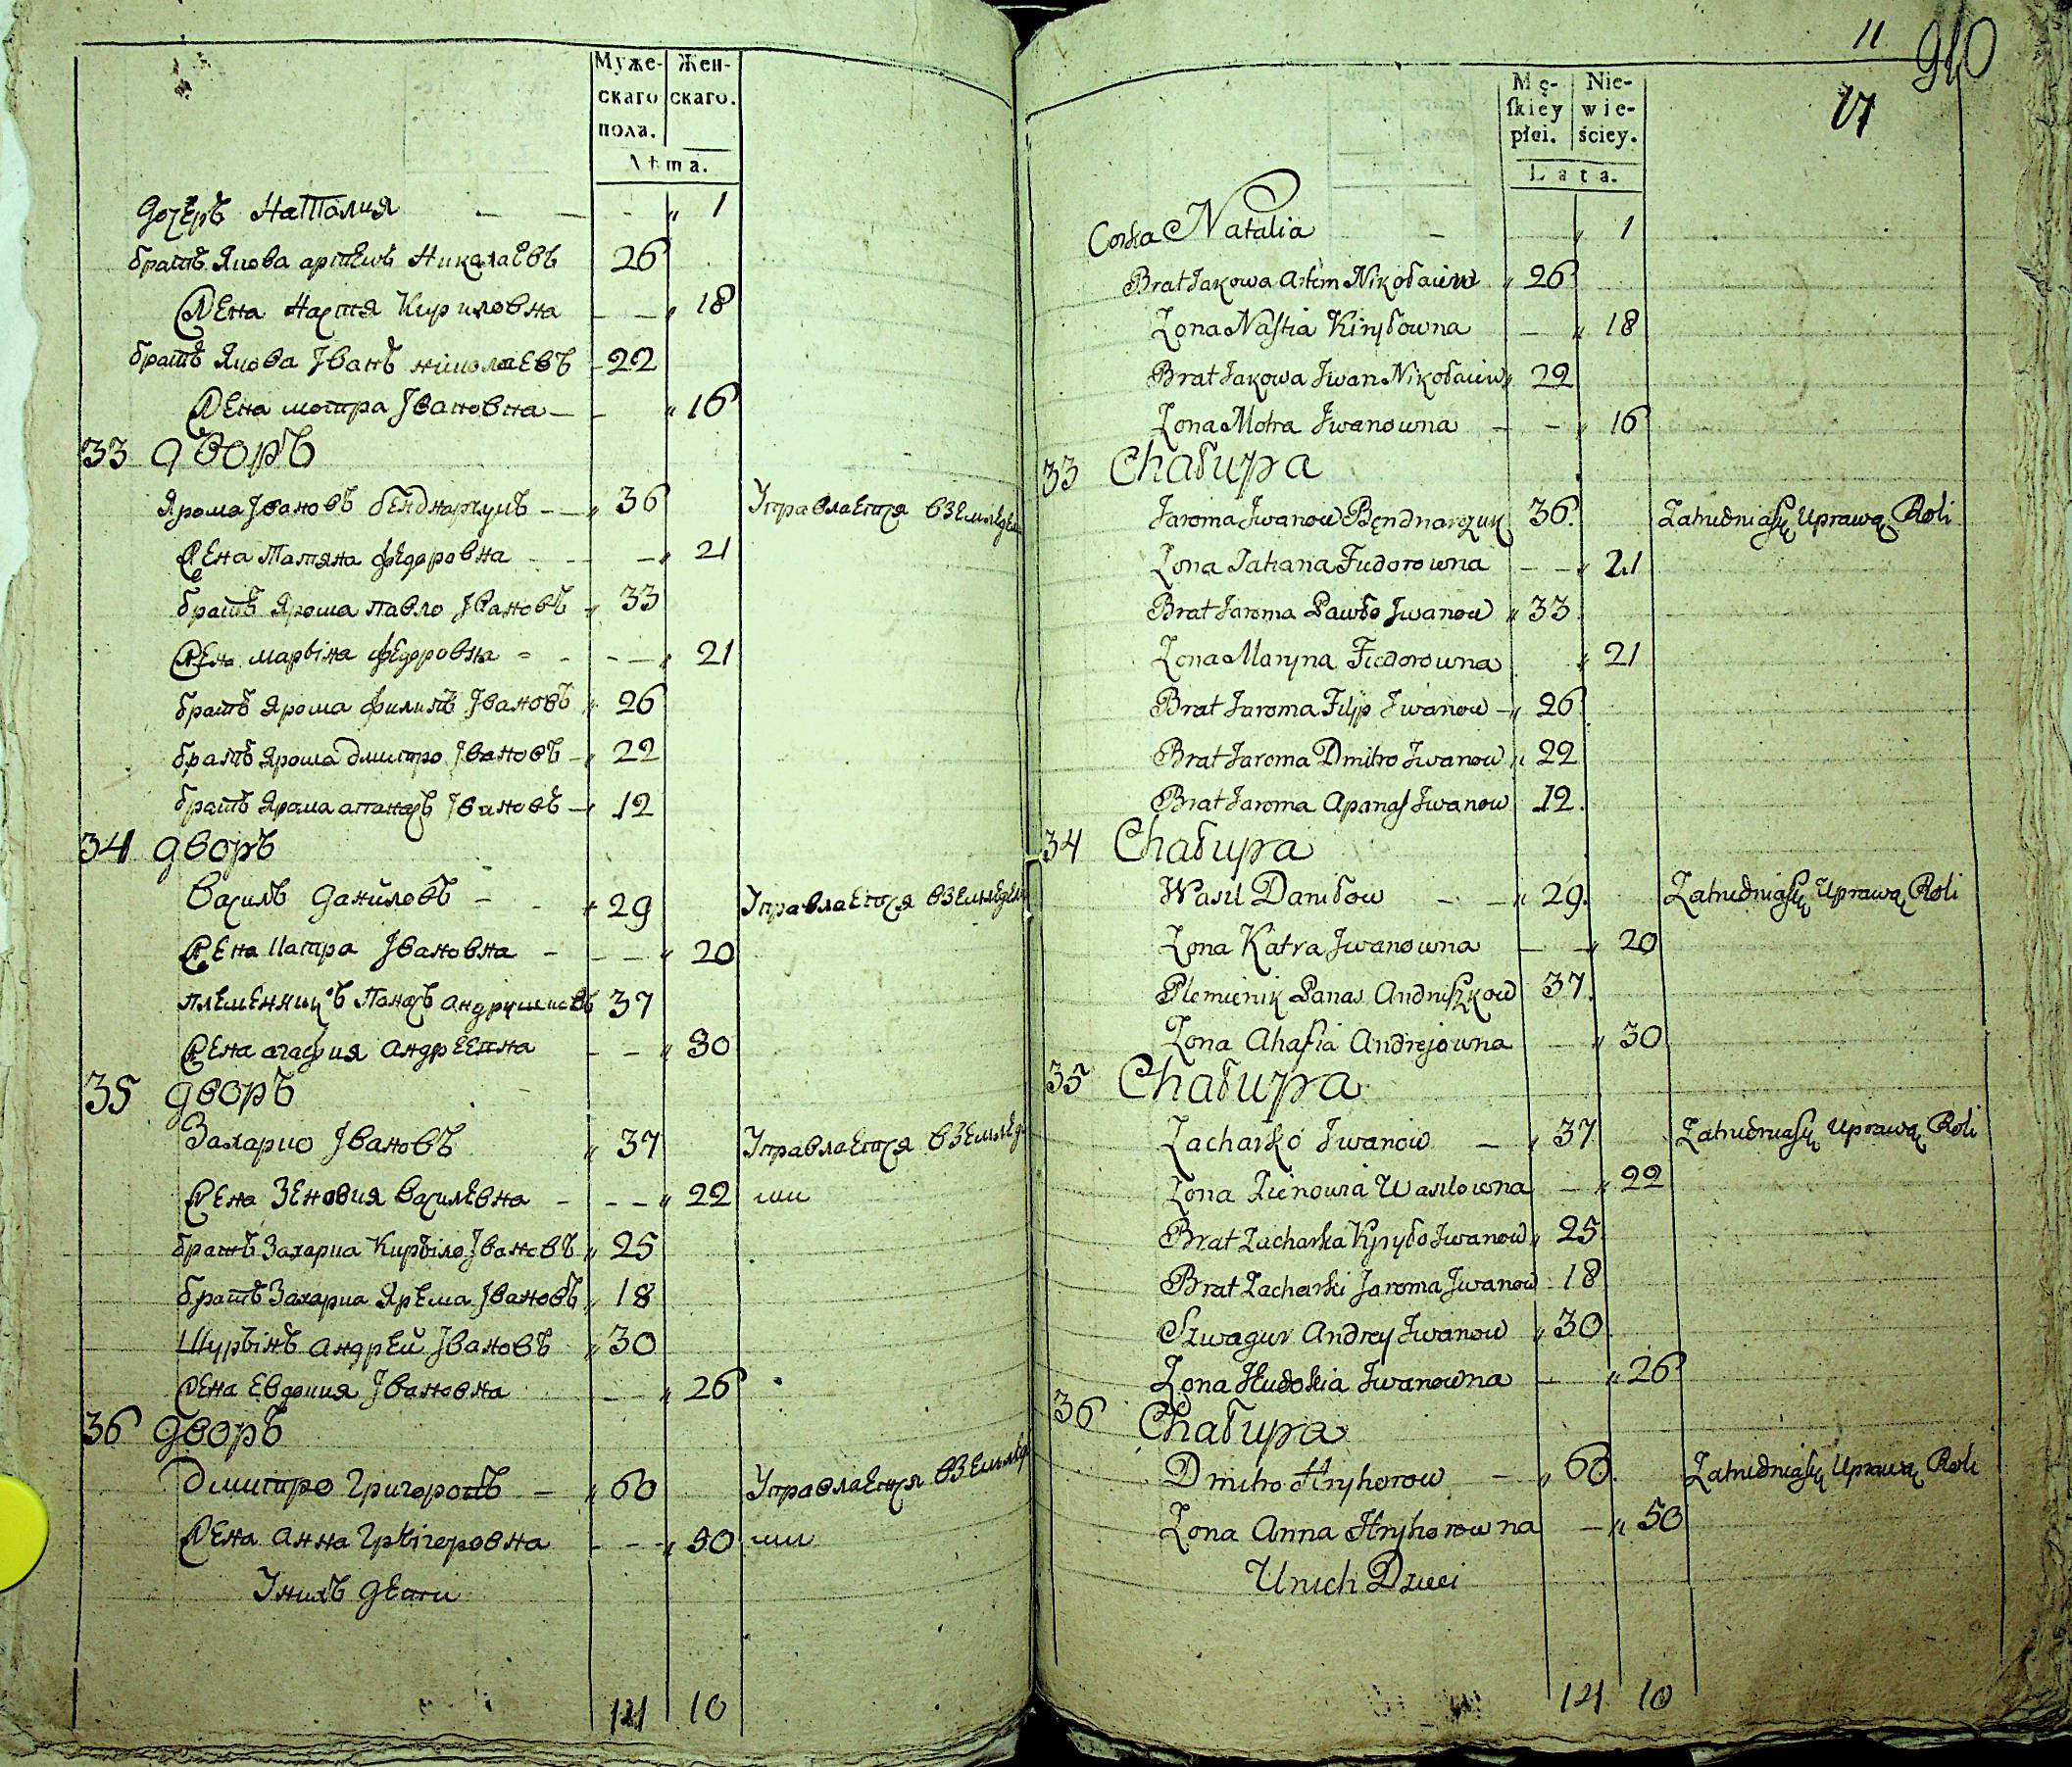 Муже-
скаго
пола.
Жен-
скаго.
Лѣта.
дочеръ Наталия — — - „ 1
братъ Якова артемъ Николаевъ 26
Жена Настя Кириловна — — „ 18
братъ Якова Іванъ николаевъ - 22
Жена мотра Івановна — - „ 16
33 дворъ
Ярома Івановъ бенднарчукъ - — „ 36 Управлается вземлед
Жена Татяна федоровна - — — „ 21
братъ Ярома павло Івановъ „ 33
Жена марвіна федоровна - - - — „ 21
братъ Ярома филипъ Івановъ „ 26
братъ Ярома дмитро Івановъ - „ 22
братъ Ярома апанасъ Івановъ — 12
34 дворъ
Василъ даниловъ - - „ 29 Управлается вземледел
Жена Катра Івановна - - — „ 20
племенникъ Панасъ андрушковъ 37
Жена агафия андреевна - — „ 30
35 дворъ
Захарко Івановъ „ 37 Управлается вземлед
Жена Зеновия василевна - - — „ 22
братъ Захарка Киръіло Івановъ „ 25
братъ Захарка Ярема Івановъ „ 18
Шуръінъ андрей Івановъ „ 30
Жена Евдокия Івановна - — „ 26
36 дворъ
Дмитро Григоровъ — „ 60 Управлается вземлед
Жена анна Гръігоровна - - - „ 50
Унихъ дети
14 10
11 940
17
Mę-
ſkiey
płci.
Nie-
wie-
ściey.
Lata.
Corka Natalia — „ 1
Brat Jakowa Artem Nikołaiew „ 26
Zona Nastia Kiryłowna — „ 18
Brat Jakowa Jwan Nikołaiew „ 22
Zona Motra Jwanowna — - „ 16
33 Chałupa
Jaroma Jwanow Bęndnarczuk 36. Zatrudnia się Uprawą Roli
Zona Tatiana Fudorowna — — „ 21
Brat Jaroma Pawło Jwanow „ 33
Zona Maryna Fiedorowna „ 21
Brat Jaroma Filip Jwanow — „ 26
Brat Jaroma Dmitro Jwanow „ 22
Brat Jaroma Apanas Jwanow 12.
34 Chałupa
Wasil Daniłow - — „ 29. Zatrudnia się Uprawą Roli
Zona Katra Jwanowna — — „ 20
Plemienik Panas Andruszkow 37.
Zona Ahafia Andrejowna — „ 30
35 Chałupa
Zacharko Jwanow — „ 37 Zatrudnia się Uprawą Roli
Zona Zienowia Wasilowna — „ 22
Brat Zacharka Kyryło Jwanow „ 25
Brat Zacharki Jaroma Jwanow 18
Szwagier Andrey Jwanow „ 30
Zona Hudokia Jwanowna — „ 26
36 Chałupa
Dmitro Hryhorow — „ 60 Zatrudnia się Uprawą Roli
Zona Anna Hryhorowna — „ 50
Unich Dzieci
14 10